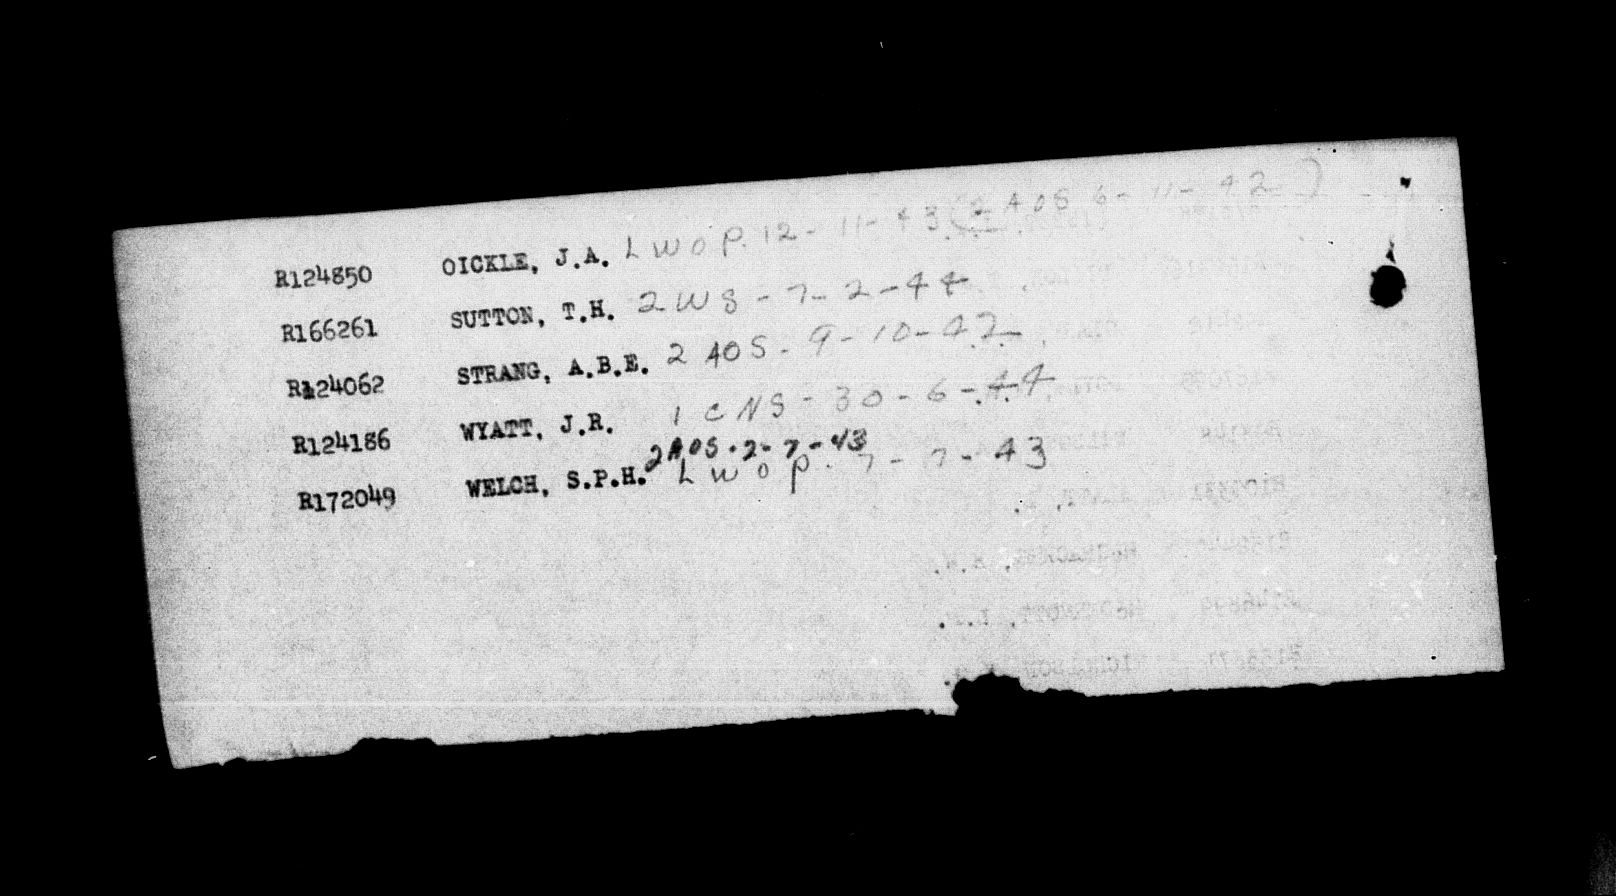 R124850 OICKLE, J.A. LWOP. 12-11-43 (2 AOS 6-11-42)
R166261 SUTTON, T.H. 2WS-7-2-44
R124062 STRANG, A.B.E. 2 AOS-9-10-42
R124186 WYATT, J.R. 1 CNS-30-6-44
2AOS.2-7-43
R172049 WELCH, S.P.H. LWOP. 7-7-43